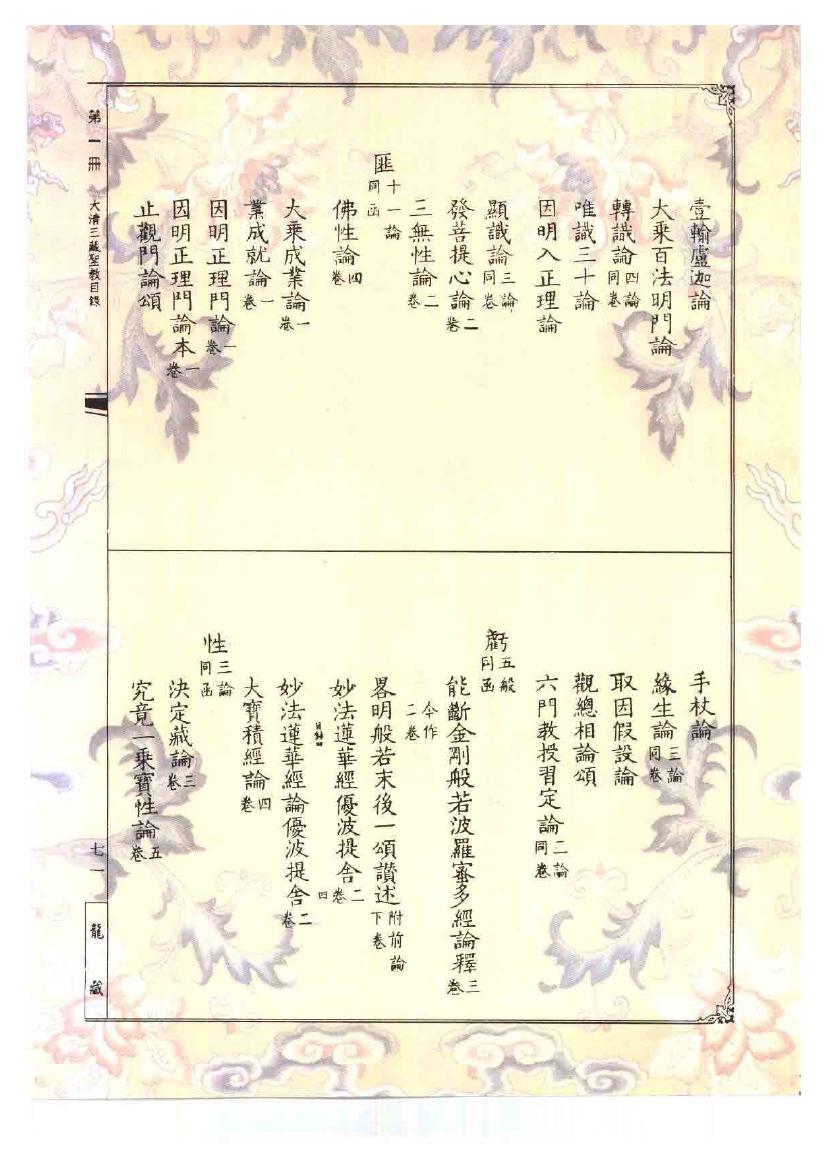 壹輸盧迦論
大乘百法明門論
轉識論四論同卷
唯識三十論
因明入正理論
顯識論三論同卷
發菩提心論二卷
三無性論二卷
匪十一論同函
佛性論四卷
大乘成業論一卷
業成就論一卷
因明正理門論一卷
因明正理門論本一卷
止觀門論頌
手杖論
緣生論三論同卷
取因假設論
觀總相論頌
六門教授習定論二論同卷
虧五般同函
能斷金剛般若波羅蜜多經論釋三卷
今作二卷
畧明般若末後一頌讚述附前論下卷
妙法蓮華經優波提舍二卷四
妙法蓮華經論優波提舍二卷
大寶積經論四卷
性三論同函
決定藏論三卷
究竟一乘寶性論五卷
第一冊 大清三藏聖教目錄
七一
龍藏